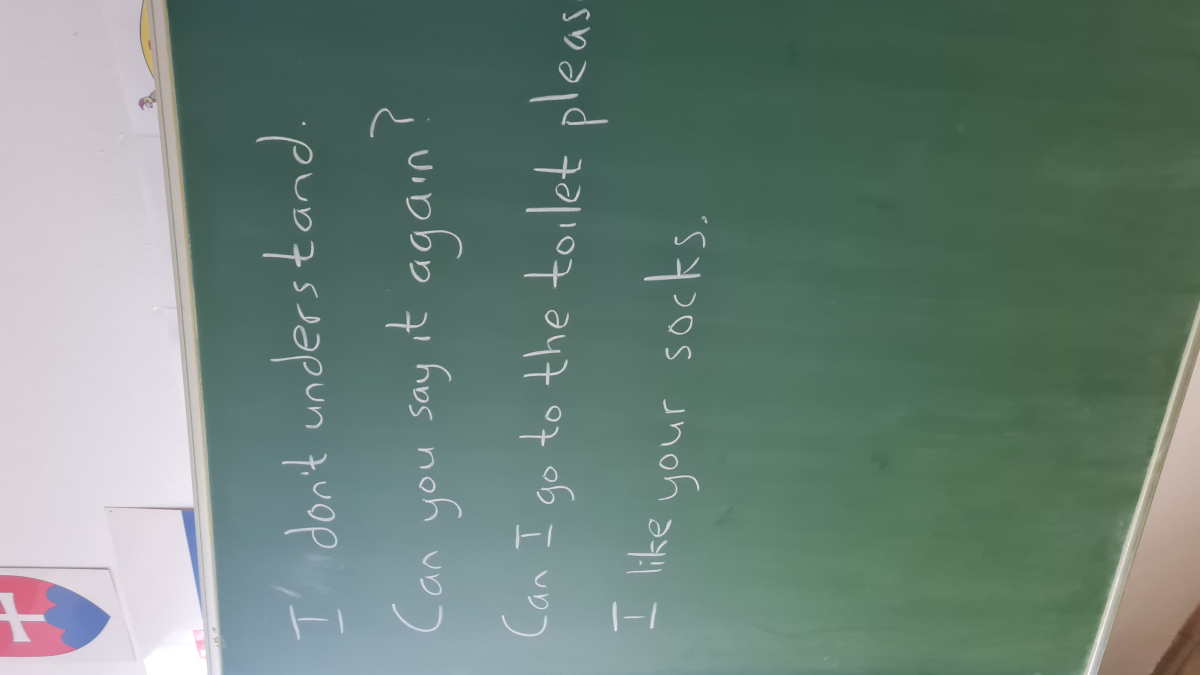 I don't understand.
Can you say it again?
Can I go to the toilet pleas
I like your socks.